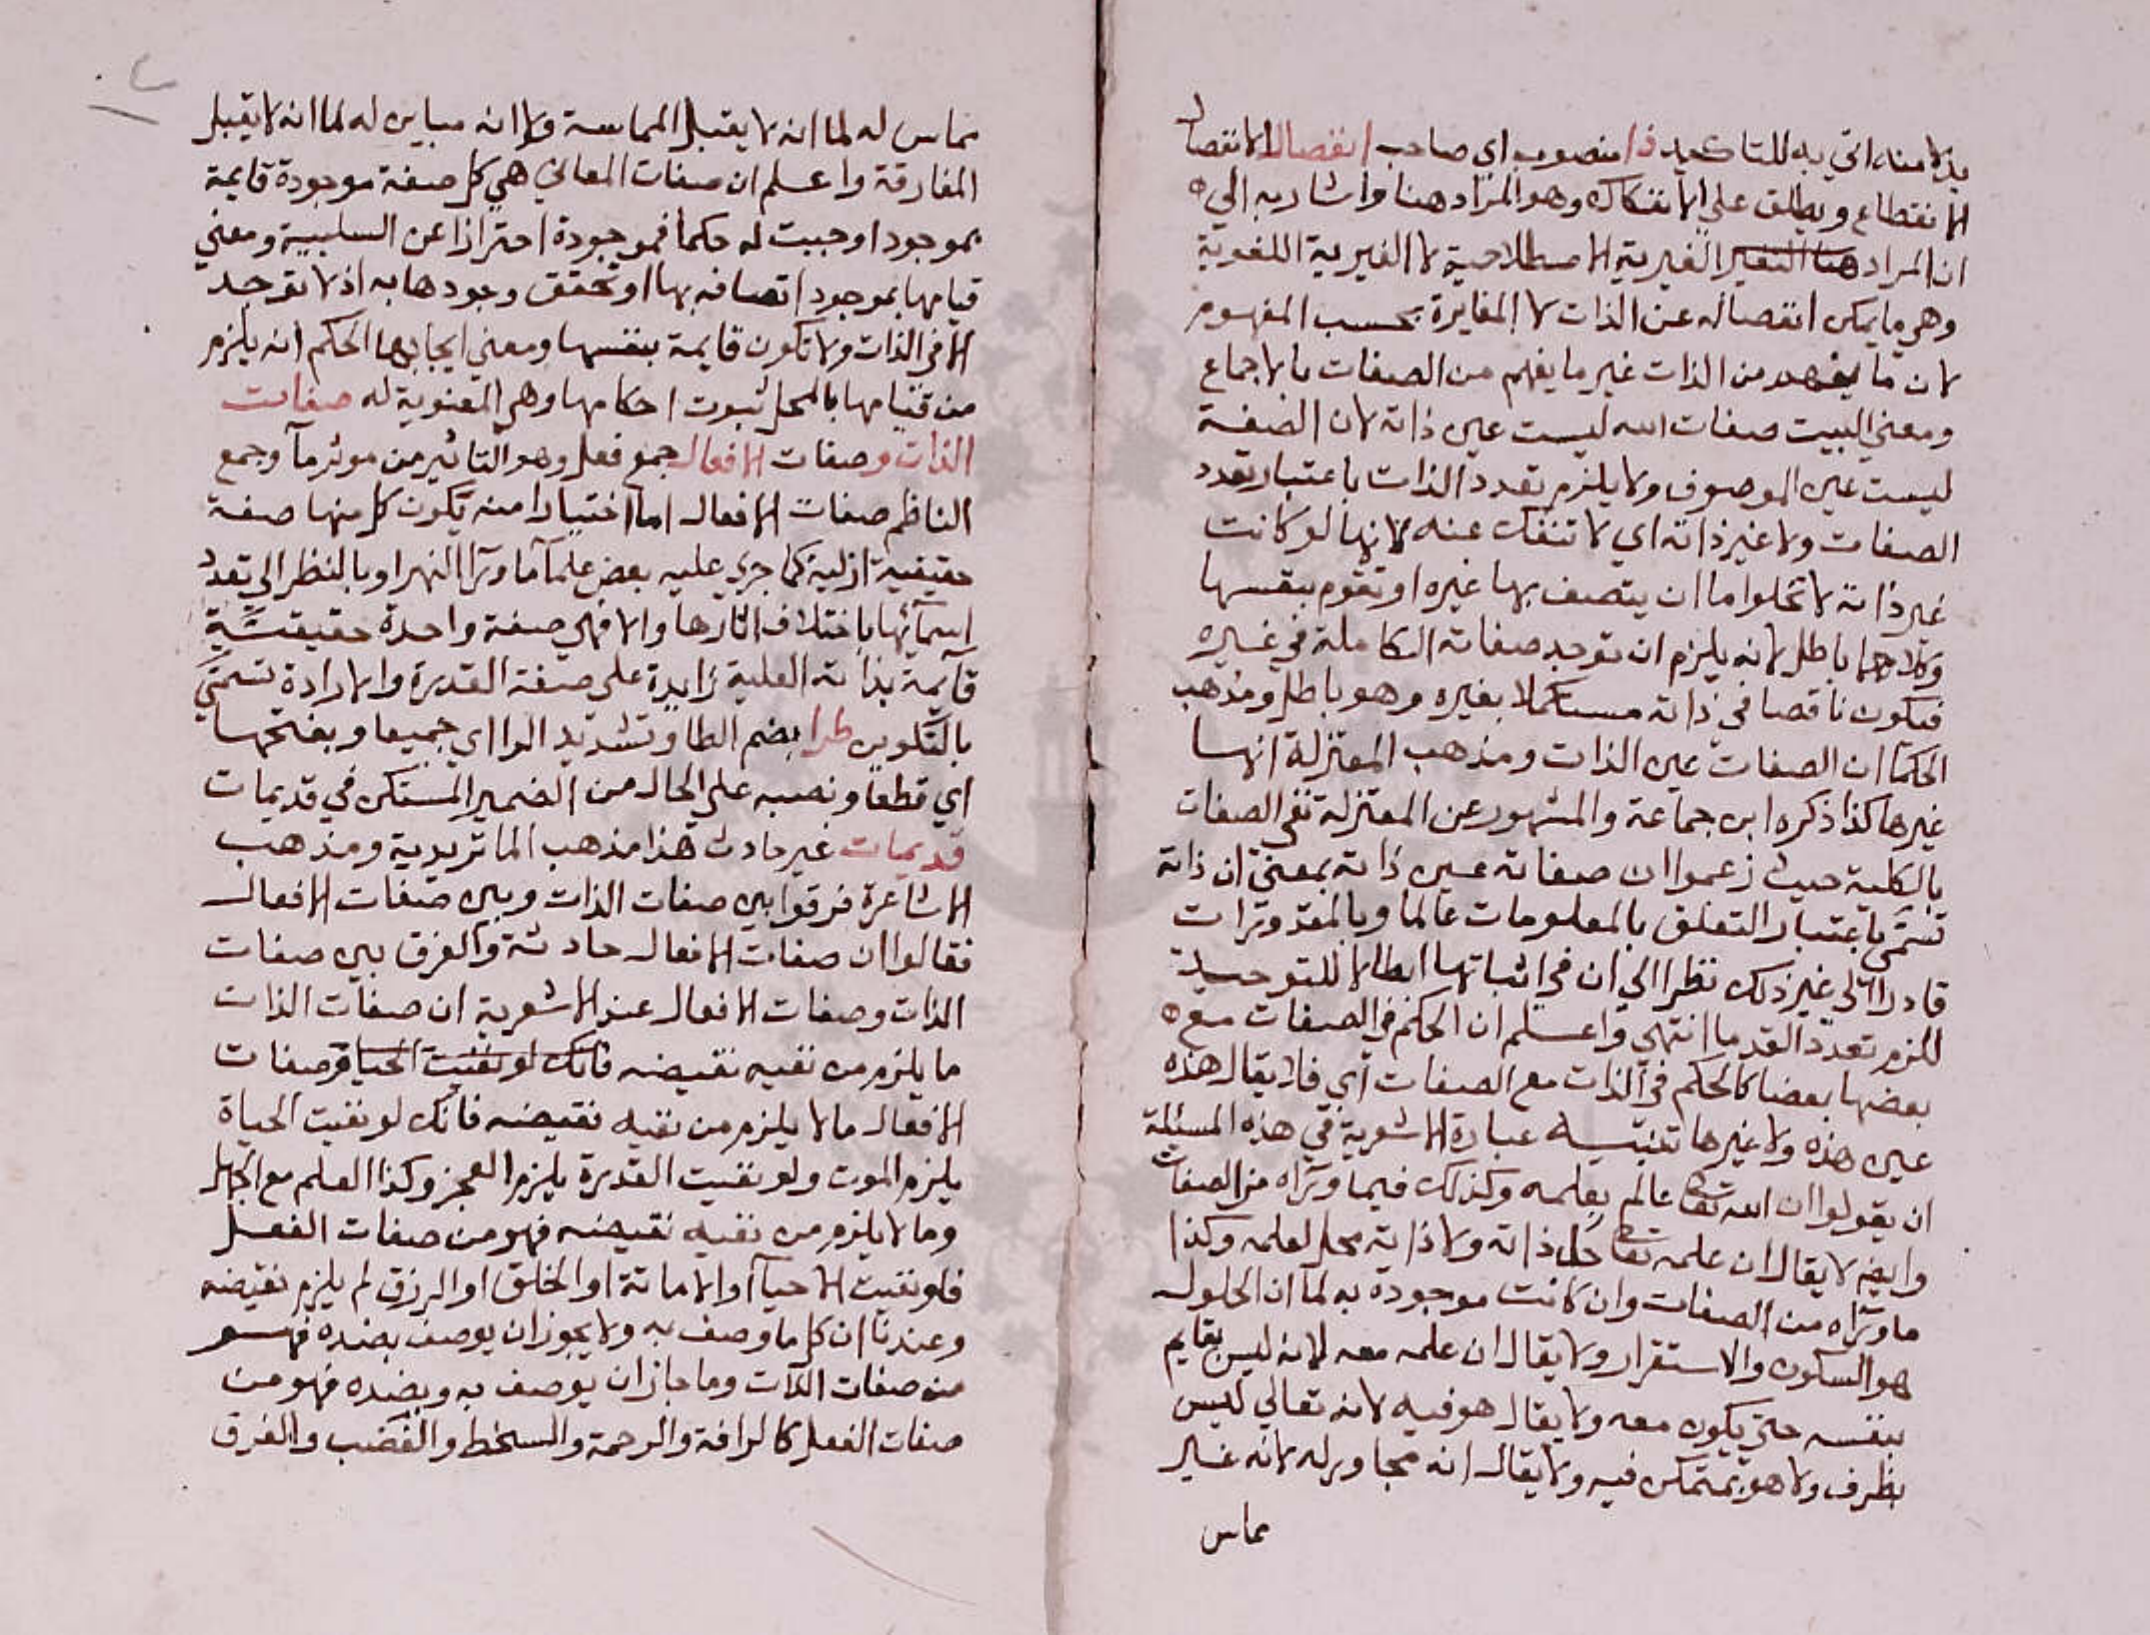 بدلا منه اتي به للتاكيد ذا منصوب اي صاحب انفصال الانفصال
الانقطاع ويطلق علي الانفكاك وهو المراد هنا واشار به الي
ان المراد هنا الغيرية الاصطلاحية لا الغيرية اللغوية
وهي ما يمكن انفصاله عن الذات لا المغايرة بحسب المفهوم
لان ما يفهم من الذات غير ما يفهم من الصفات بالاجماع
ومعني البيت صفات الله ليست عين ذاته لان الصفة
ليست عين الموصوف ولا يلزم تعدد الذات باعتبار تعدد
الصفات ولا غير ذاته اي لا تنفك عنه لانها لو كانت
غير ذاته لا تخلوا اما ان يتصف بها غيره او تقوم بنفسها
وكلاهما باطل لانه يلزم ان توجد صفاته الكاملة في غيره
فيكون ناقصا في ذاته مستكملا بغيره وهو باطل ومذهب
الحكما ان الصفات عين الذات ومذهب المعتزلة انها
غيرها كذا ذكره ابن جماعة والمشهور عن المعتزلة نفي الصفات
بالكلية حيث زعموا ان صفاته عين ذاته بمعني ان ذاته
تسمي باعتبار التعلق بالمعلومات عالما وبالمقدورات
قادرا الي غير ذلك نظرا الي ان في اثباتها ابطالا للتوحيد
للزوم تعدد القدما انتهي واعلم ان الحكم في الصفات مع
بعضها بعضا كالحكم في الذات مع الصفات اي فلا يقال هذه
عين هذه ولا غيرها تنبيه عبارة الاشعرية في هذه المسئلة
ان يقولوا ان الله تعا عالم بعلمه وكذلك فيما وراه من الصفات
وايضا لا يقال ان علمه تعا حل ذاته ولا ذاته محل لعلمه وكذا
ما وراه من الصفات وان كانت موجودة به لما ان الحلول
هو السكون والاستقرار ولا يقال ان علمه معه لانه ليس بقايم
بنفسه حتي يكون معه ولا يقال هو فيه لانه تعالي ليس
بظرف ولا هو بمتمكن فيه ولا يقال انه مجاور له لانه غير
مماس
مماس له لما انه لا يقبل المماسة ولا انه مباين له لما انه لا يقبل
المفارقة واعلم ان صفات المعاني هي كل صفة موجودة قايمة
بموجود اوجبت له حكما فموجودة احترازا عن السلبية ومعني
قيامها بموجود اتصافه بها او تحقق وجودها به اذ لا توجد
الا في الذات ولا تكون قايمة بنفسها ومعني ايجابها الحكم انه يلزم
من قيامها بالمحل ثبوت احكامها وهي المعنوية له صفات
الذات وصفات الافعال جمع فعل وهو التاثير من موثر ما وجمع
الناظم صفات الافعال اما اختيارا منه بكون كل منها صفة
حقيقية ازلية كما جري عليه بعض علما ما ورا النهر او بالنظر الي تعدد
اسمائها باختلاف اثارها والا فهي صفة واحدة حقيقية
قائمة بذاته العلية زايدة علي صفة القدرة والارادة تسمي
بالتكوين طرا بضم الطا وتشديد الرا اي جميعا وبفتحها
اي قطعا ونصبه علي الحال من الضمير المستكن في قديمات
قديمات غير حادث هذا مذهب الماتريدية ومذهب
الاشاعرة فرقوا بين صفات الذات وبين صفات الافعال
فقالوا ان صفات الافعال حادثة والفرق بين صفات
الذات وصفات الافعال عند الاشعرية ان صفات الذات
ما يلزم من نفيه نقيضه فانك لو نفيت الحياة وصفات
الافعال ما لا يلزم من نفيه نقيضه فانك لو نفيت الحياة
يلزم الموت ولو نفيت القدرة يلزم العجز وكذا العلم مع الجهل
وما لا يلزم من نفيه نقيضه فهو من صفات الفعل
فلو نفيت الاحيا او الاماتة او الخلق او الرزق لم يلزم نقيضه
وعندنا ان كل ما وصف به ولا يجوز ان يوصف بضده فهو
من صفات الذات وما جاز ان يوصف به وبضده فهو من
صفات الفعل كالرافة والرحمة والسخط والغضب والفرق